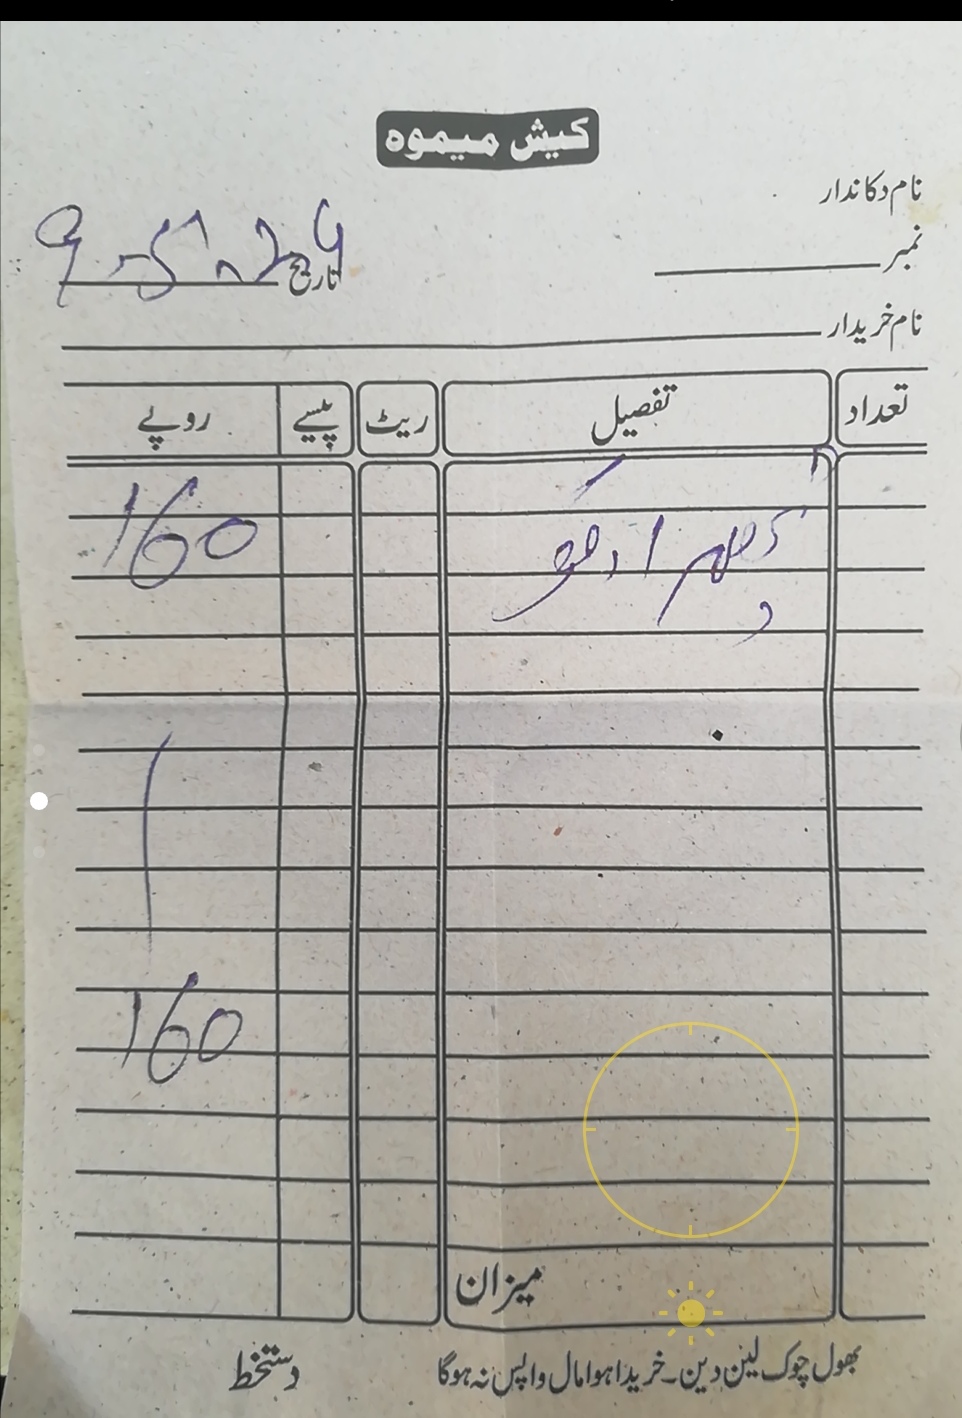 کیش میموہ
نام دکاندار
نمبر
تاریخ 9-5-24
نام خریدار
تعداد تفصیل ریٹ پیسے روپے
160
160
میزان
بھول چوک لین دین۔ خریدا ہوا مال واپس نہ ہوگا
دستخط